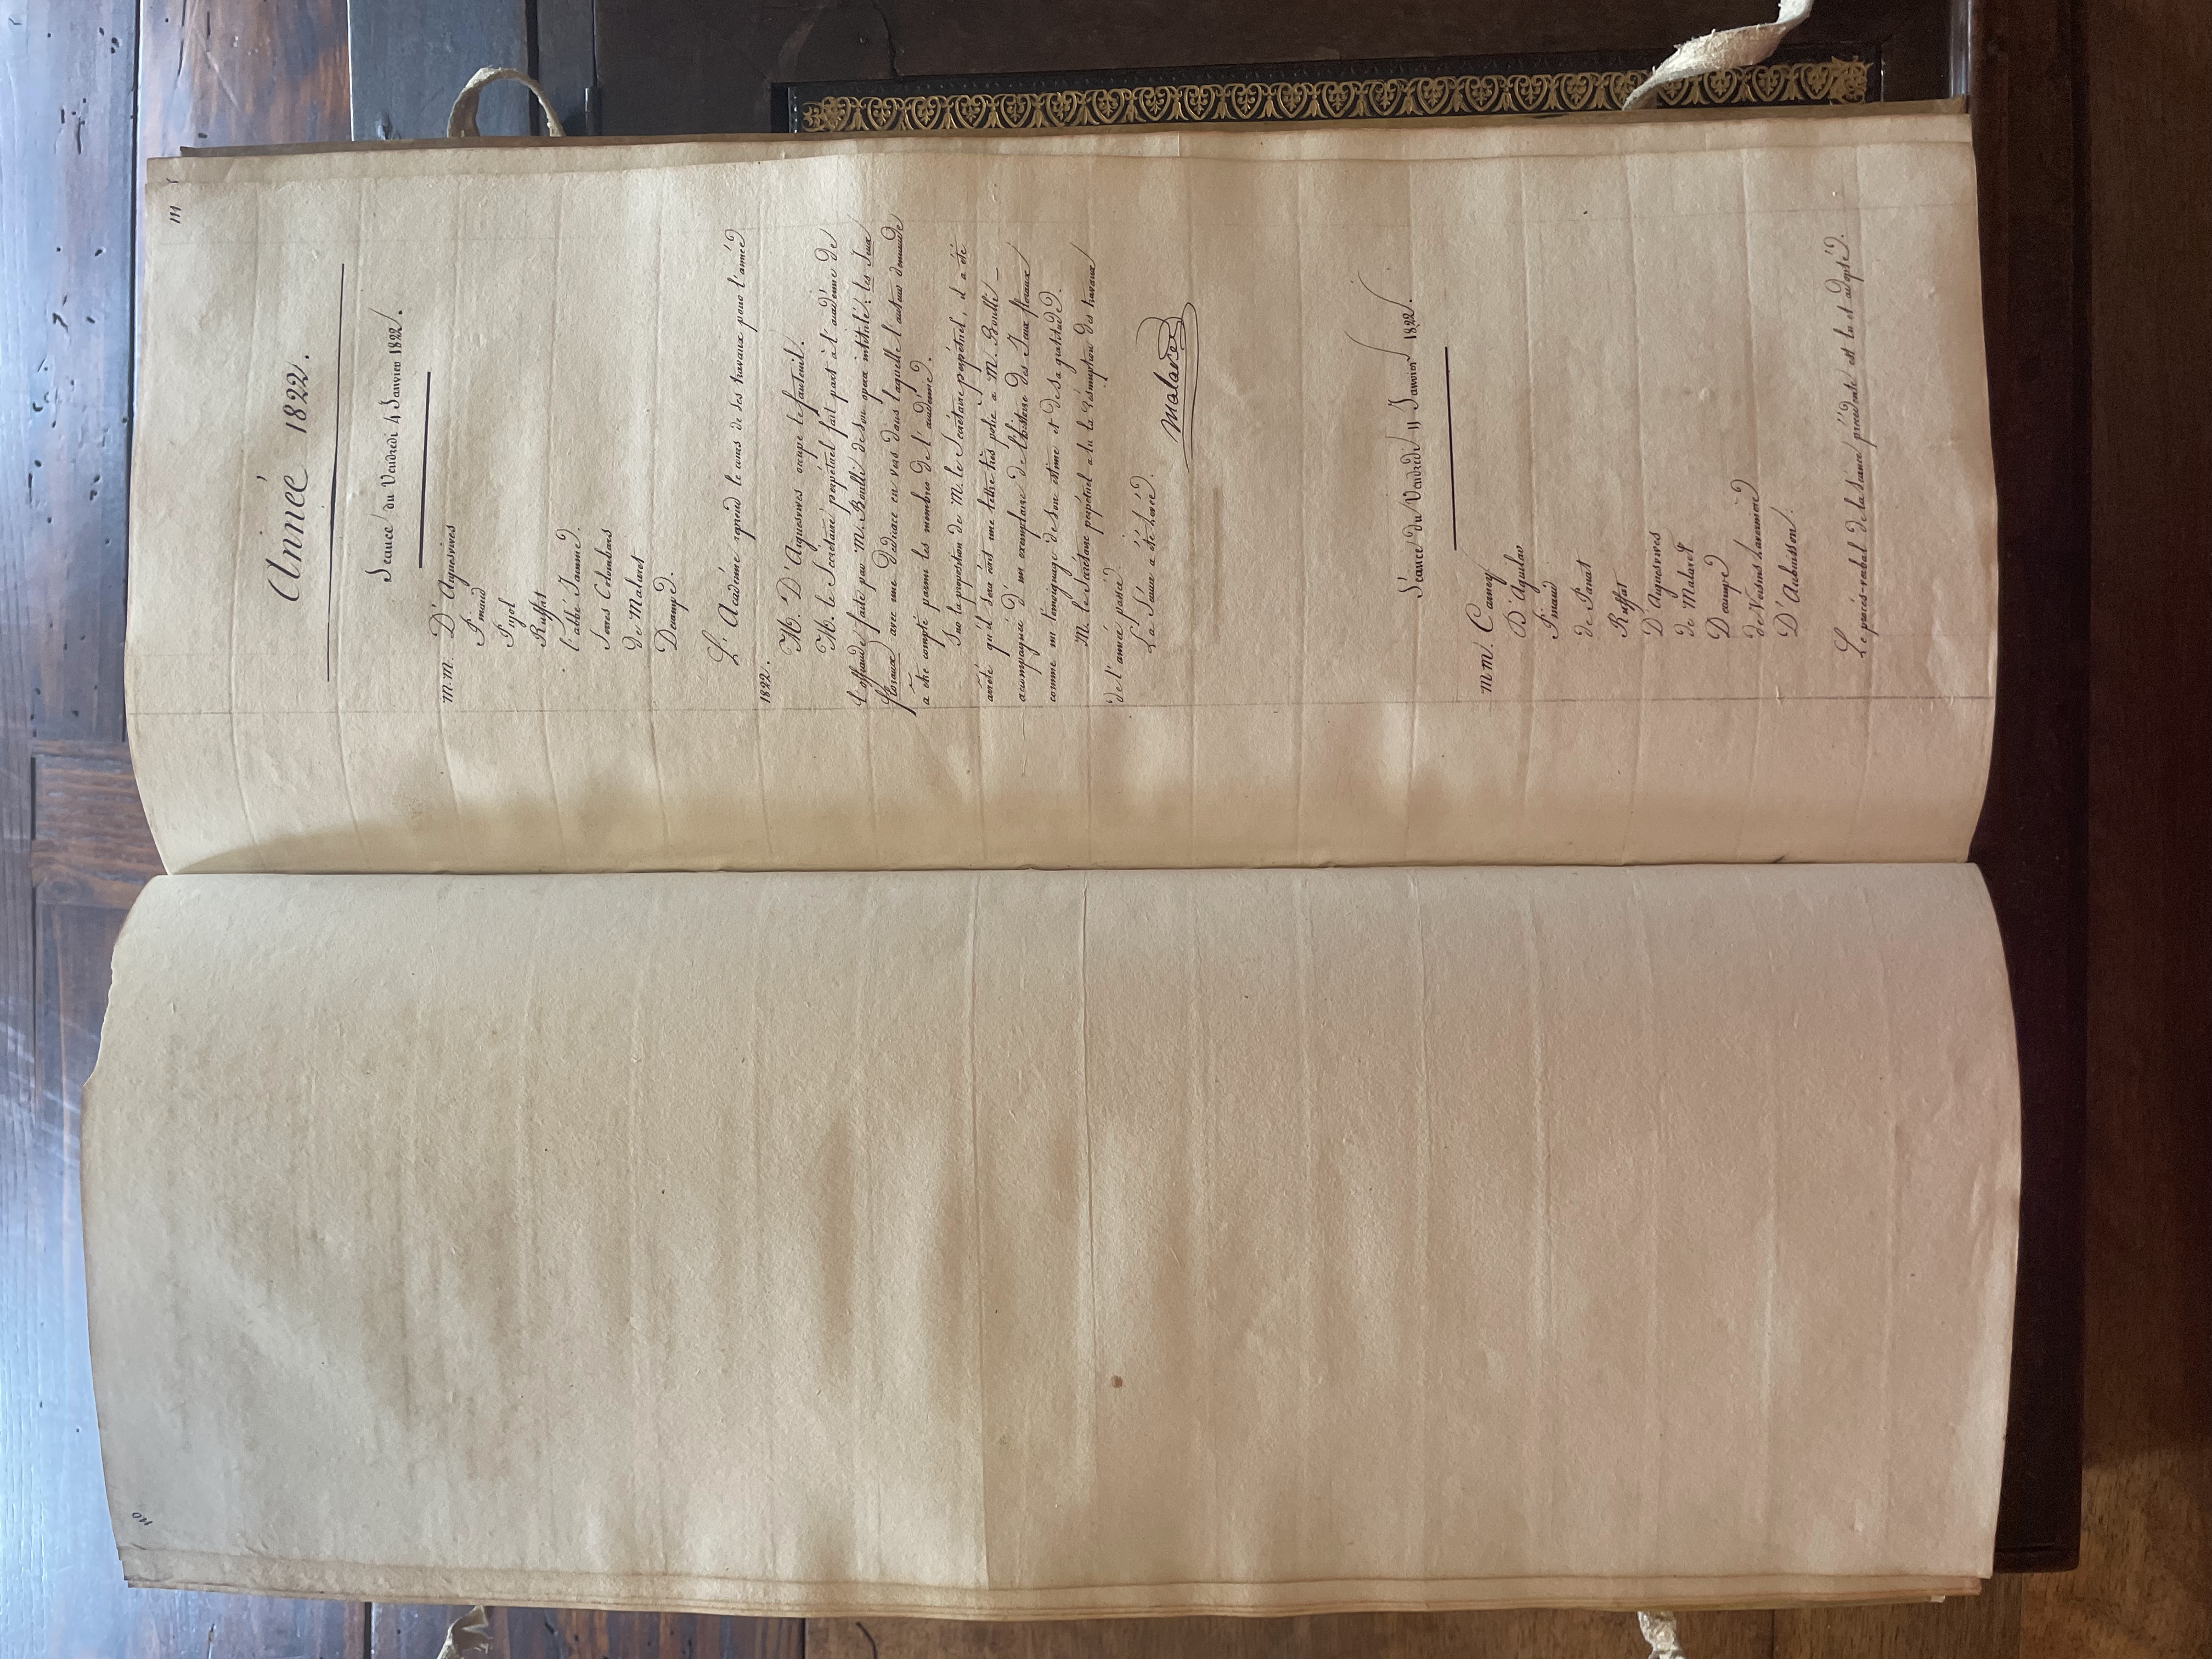 110
111
Année 1822.
Séance du Vendredi 4 Janvier 1822.
M.M. D'Aiguesvives
Pinaud
Pujol
Ruffat
l'abbé Jamme.
Serres Colombars
de Malaret
Decampe.
L'Académie reprend le cours de ses travaux pour l'année
1822.
M. D'Aiguesvives occupe le fauteuil.
M. le Secrétaire perpétuel fait part à l'académie de
l'offrande faite par M. Boulli de son opera intitulé: les Jeux
floraux avec une dédicace en vers dans laquelle l'auteur demande
a être compté parmi les membres de l'académie.
Sur la proposition de M. le Secrétaire perpétuel, il a été
arrêté qu'il sera écrit une lettre très polie a M. Boulli -
accompagnée d'un exemplaire de l'histoire des Jeux floraux
comme un temoignage de son estime et de sa gratitude.
M. le Secrétaire perpétuel a lu la résumption des travaux
de l'année passée.
La Séance a été levée.
Malaret
Séance du Vendredi 11 Janvier 1822.
M.M. Carney
D'Aguilar
Pinaud
de Panat
Ruffat
D'Aiguesvives
de Malaret
Decampe
de Voisins Lavernière
D'Aubuisson.
Le procès-verbal de la séance précédente est lu et adopté.